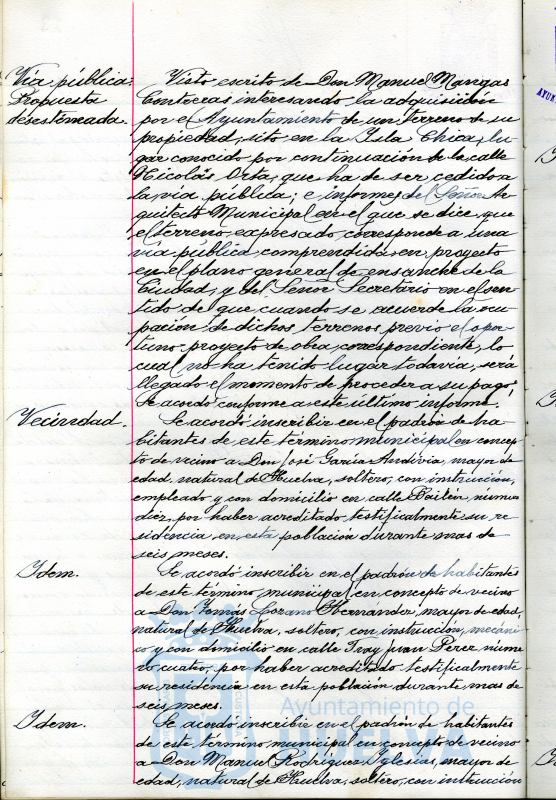 Vía pública:
Propuesta
desestimada.
Visto escrito de Don Manuel Mangas
Contreras interesando la adquisición
por el Ayuntamiento de un terreno de su
propiedad, sito en la Isla Chica, lu-
gar conocido por continuación de la calle
Nicolás Orta, que ha de ser cedido a
la vía pública; e informes del Señor Ar-
quitecto Municipal en el que se dice, que
el terreno expresado corresponde a una
vía pública comprendida en proyecto
en el plano general de ensanche de la
Ciudad, y del Señor Secretario en el sen-
tido de que, cuando se acuerde la ocu-
pación de dichos terrenos previo el opor-
tuno proyecto de obra, correspondiente, lo
cual no ha tenido lugar todavía, será
llegado el momento de proceder a su pago,
Se acordó conforme a este último informe.
Vecindad.
Se acordó inscribir en el padrón de ha-
bitantes de este término municipal en concep-
to de vecino a Don José García Andivia, mayor de
edad, natural de Huelva, soltero, con instrucción,
empleado y con domicilio en calle Bailén, número
diez, por haber acreditado testificalmente su re-
sidencia en esta población durante mas de
seis meses.
Idem.
Se acordó inscribir en el padrón de habitantes
de este término municipal en concepto de vecino
a Don Tomás Lozano Hernander, mayor de edad,
natural de Huelva, soltero, con instrucción, mecáni-
co y con domicilio en calle Fray Juan Perez núme-
ro cuatro, por haber acreditado testificalmente
su residencia en esta población durante mas de
seis meses.
Idem.
Se acordó inscribir en el padrón de habitantes
de este término municipal en concepto de vecino
a Don Manuel Rodríguez Iglesias, mayor de
edad, natural de Huelva, soltero, con instrucción
Ayuntamiento de
HUELVA
AYUN